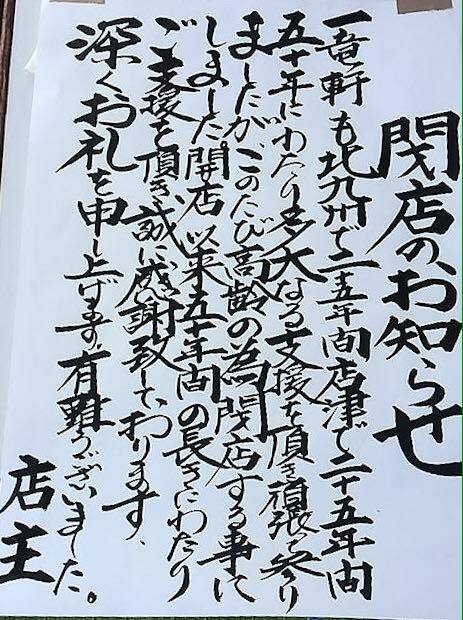 閉店のお知らせ
一竜軒も北九州で二十五年間唐津で二十五年間
五十年にわたり多大なる支援を頂き頑張って参り
ましたが、このたび高齢の為閉店する事に
しました。開店以来五十年間の長きにわたり
ご支援を頂き、誠に感謝致しております、
深くお礼を申し上げます。有難うございました。
店主